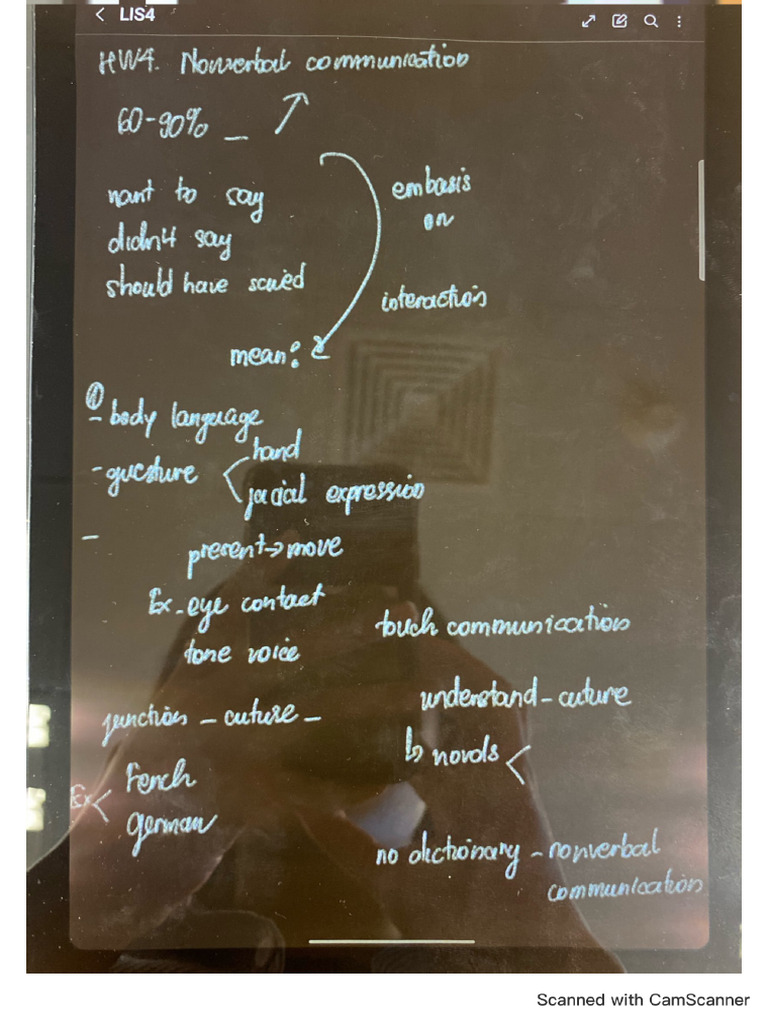 LIS4
HW4. Nonverbal communication
60-90% _
want to say
didn4 say
should have saied
embasis
on
interaction
mean:
① body language
- gucsture
hand
facial expression
-
present → move
Ex - eye contact
tone voice
touch communication
function - cuture -
understand - cuture
↳ novols <
Ex <
Fench
german
no dictionary - nonverbal
communication
Scanned with CamScanner